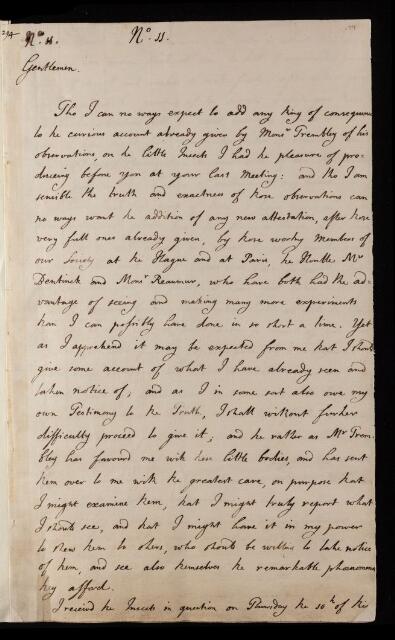 294
No. 11.
No. 11.
Gentlemen.
Tho I can no ways expect to add any thing of consequence
to the curious account already given by Monsr Trembley of his
observations, on the little Insects I had the pleasure of pro-
ducing before you at your last Meeting: and tho I am
sensible the truth and exactness of those observations can
no ways want the addition of any new attestation, after those
very full ones already given, by those worthy Members of
our Society at the Hague and at Paris, the Honble Mr
Bentinck and Monsr Reaumur, who have both had the ad-
vantage of seeing and making many more experiments
than I can possibly have done in so short a time. Yet
as I apprehend it may be expected from me that I should
give some account of what I have already seen and
taken notice of, and as I in some sort also owe my
own Testimony to the Truth, I shall without further
difficulty proceed to give it; and the rather as Mr Trem-
bley has favourd me with these little bodies, and has sent
them over to me with the greatest care, on purpose that
I might examine them, that I might truly report what
I should see, and that I might have it in my power
to shew them to others, who should be willing to take notice
of them, and see also themselves the remarkable phænomena
they afford.
I receivd the Insects in question on Thursday the 10th of this